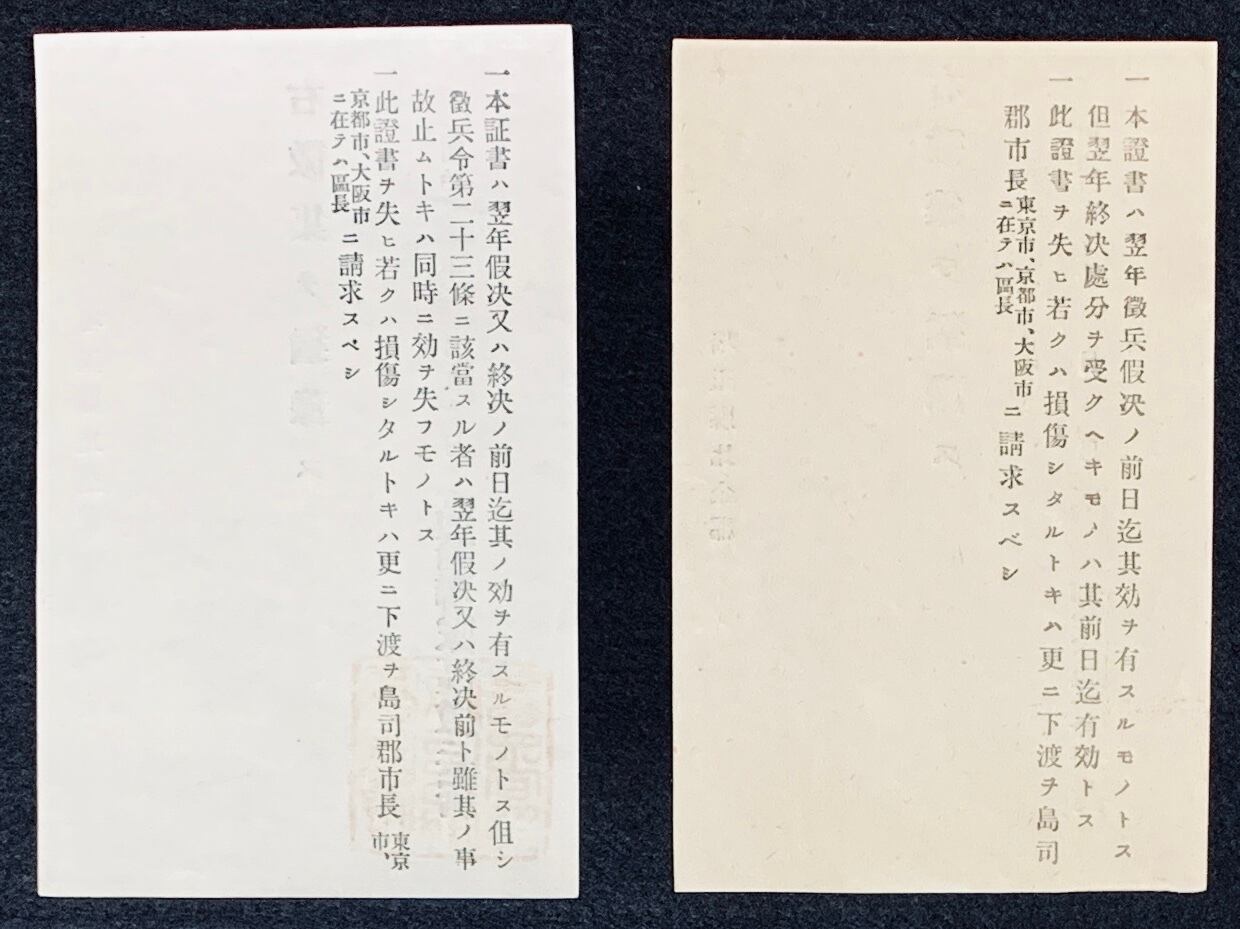 一本證書ハ翌年徵兵假决ノ前日迄其効ヲ有スルモノトス
但翌年終决處分ヲ受クヘキモノハ其前日迄有効トス
一此證書ヲ失ヒ若クハ損傷シタルトキハ更ニ下渡ヲ島司
郡市長東京市、京都市、大阪市ニ在テハ區長ニ請求スベシ
一本証書ハ翌年假决又ハ終决ノ前日迄其ノ効ヲ有スルモノトス伹シ
徵兵令第二十三條ニ該當スル者ハ翌年假决又ハ終决前ト雖其ノ事
故止ムトキハ同時ニ効ヲ失フモノトス
一此證書ヲ失ヒ若クハ損傷シタルトキハ更ニ下渡ヲ島司郡市長東京市、
京都市、大阪市ニ在テハ區長ニ請求スベシ